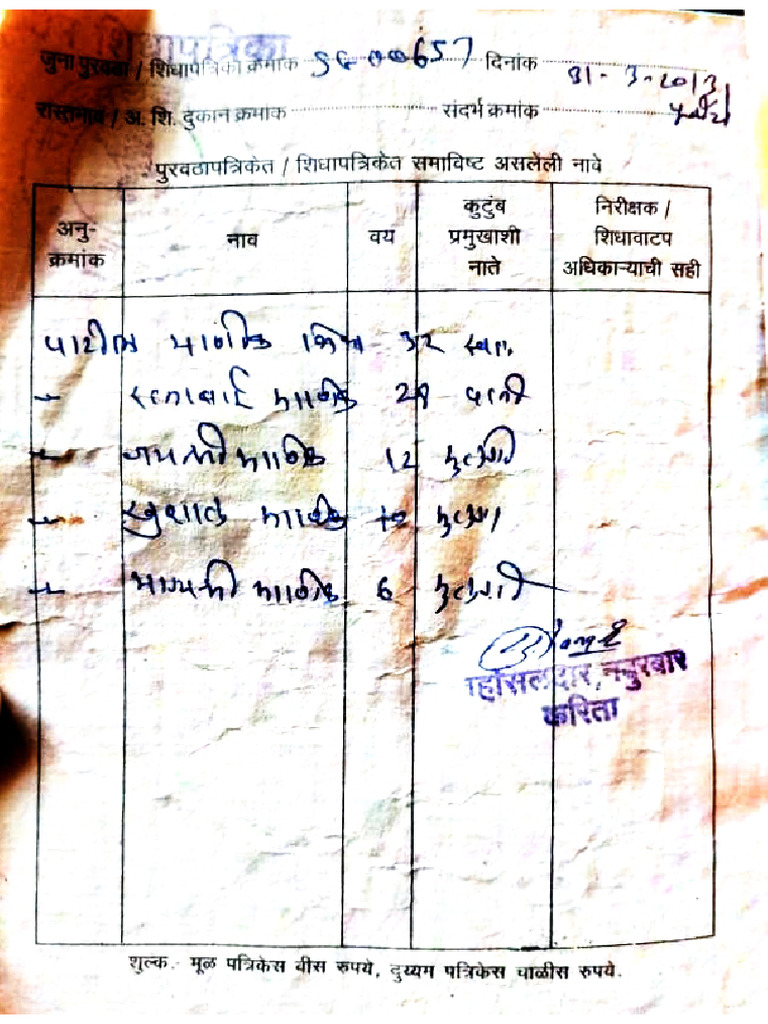 शिधापत्रिका
जुना पुरवठा / शिधापत्रिका क्रमांक 657 दिनांक 31-3-2013
रास्तभाव / अ. शि. दुकान क्रमांक संदर्भ क्रमांक
पुरवठापत्रिकेत / शिधापत्रिकेत समाविष्ट असलेली नावे
अनु-क्रमांक नाव वय कुटुंब प्रमुखाशी नाते निरीक्षक / शिधावाटप अधिकाऱ्याची सही
पाटील माणीक 32 स्वतः
माणीक 29 पत्नी
माणीक 12 मुलगी
खुशाल माणीक 10 मुलगा
भाग्यश्री माणीक 6 मुलगी
तहसिलदार, नंदुरबार
करिता
शुल्क.- मूळ पत्रिकेस वीस रुपये, दुय्यम पत्रिकेस चाळीस रुपये.